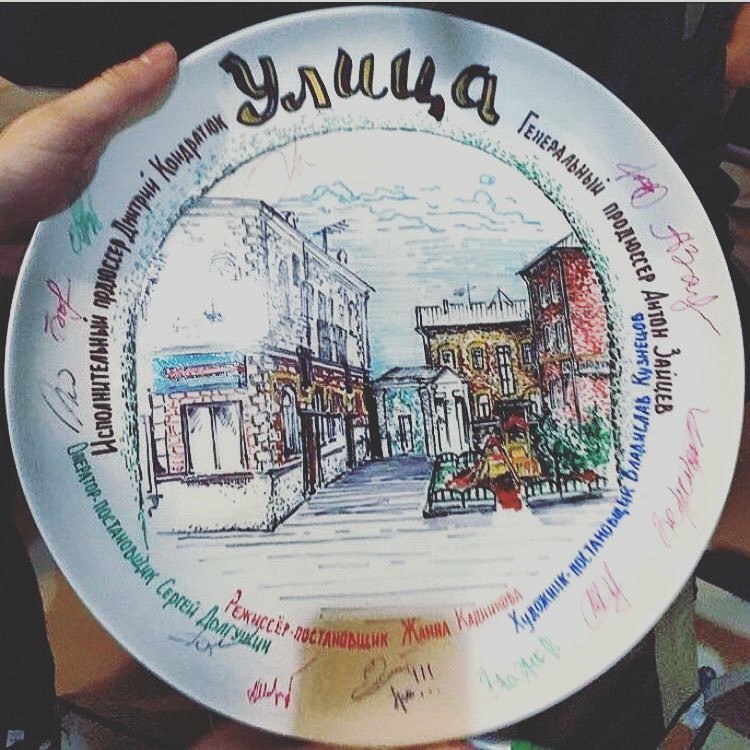 Улица
Исполнительный продюссер Дмитрий Кондратюк
Генеральный продюссер Антон Зайцев
Оператор-постановщик Сергей Долгушин
Режиссёр-постановщик Жанна Кадникова
Художник-постановщик Владислав Кузнецов